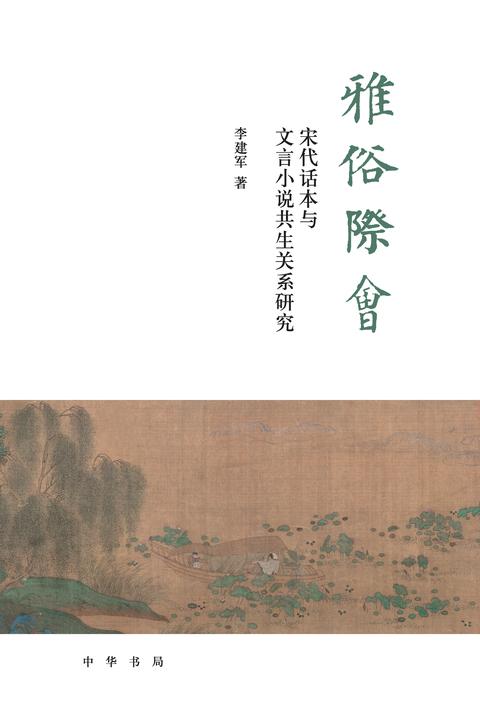 雅俗際會
宋代话本与
文言小说共生关系研究
李建军 著
中华书局